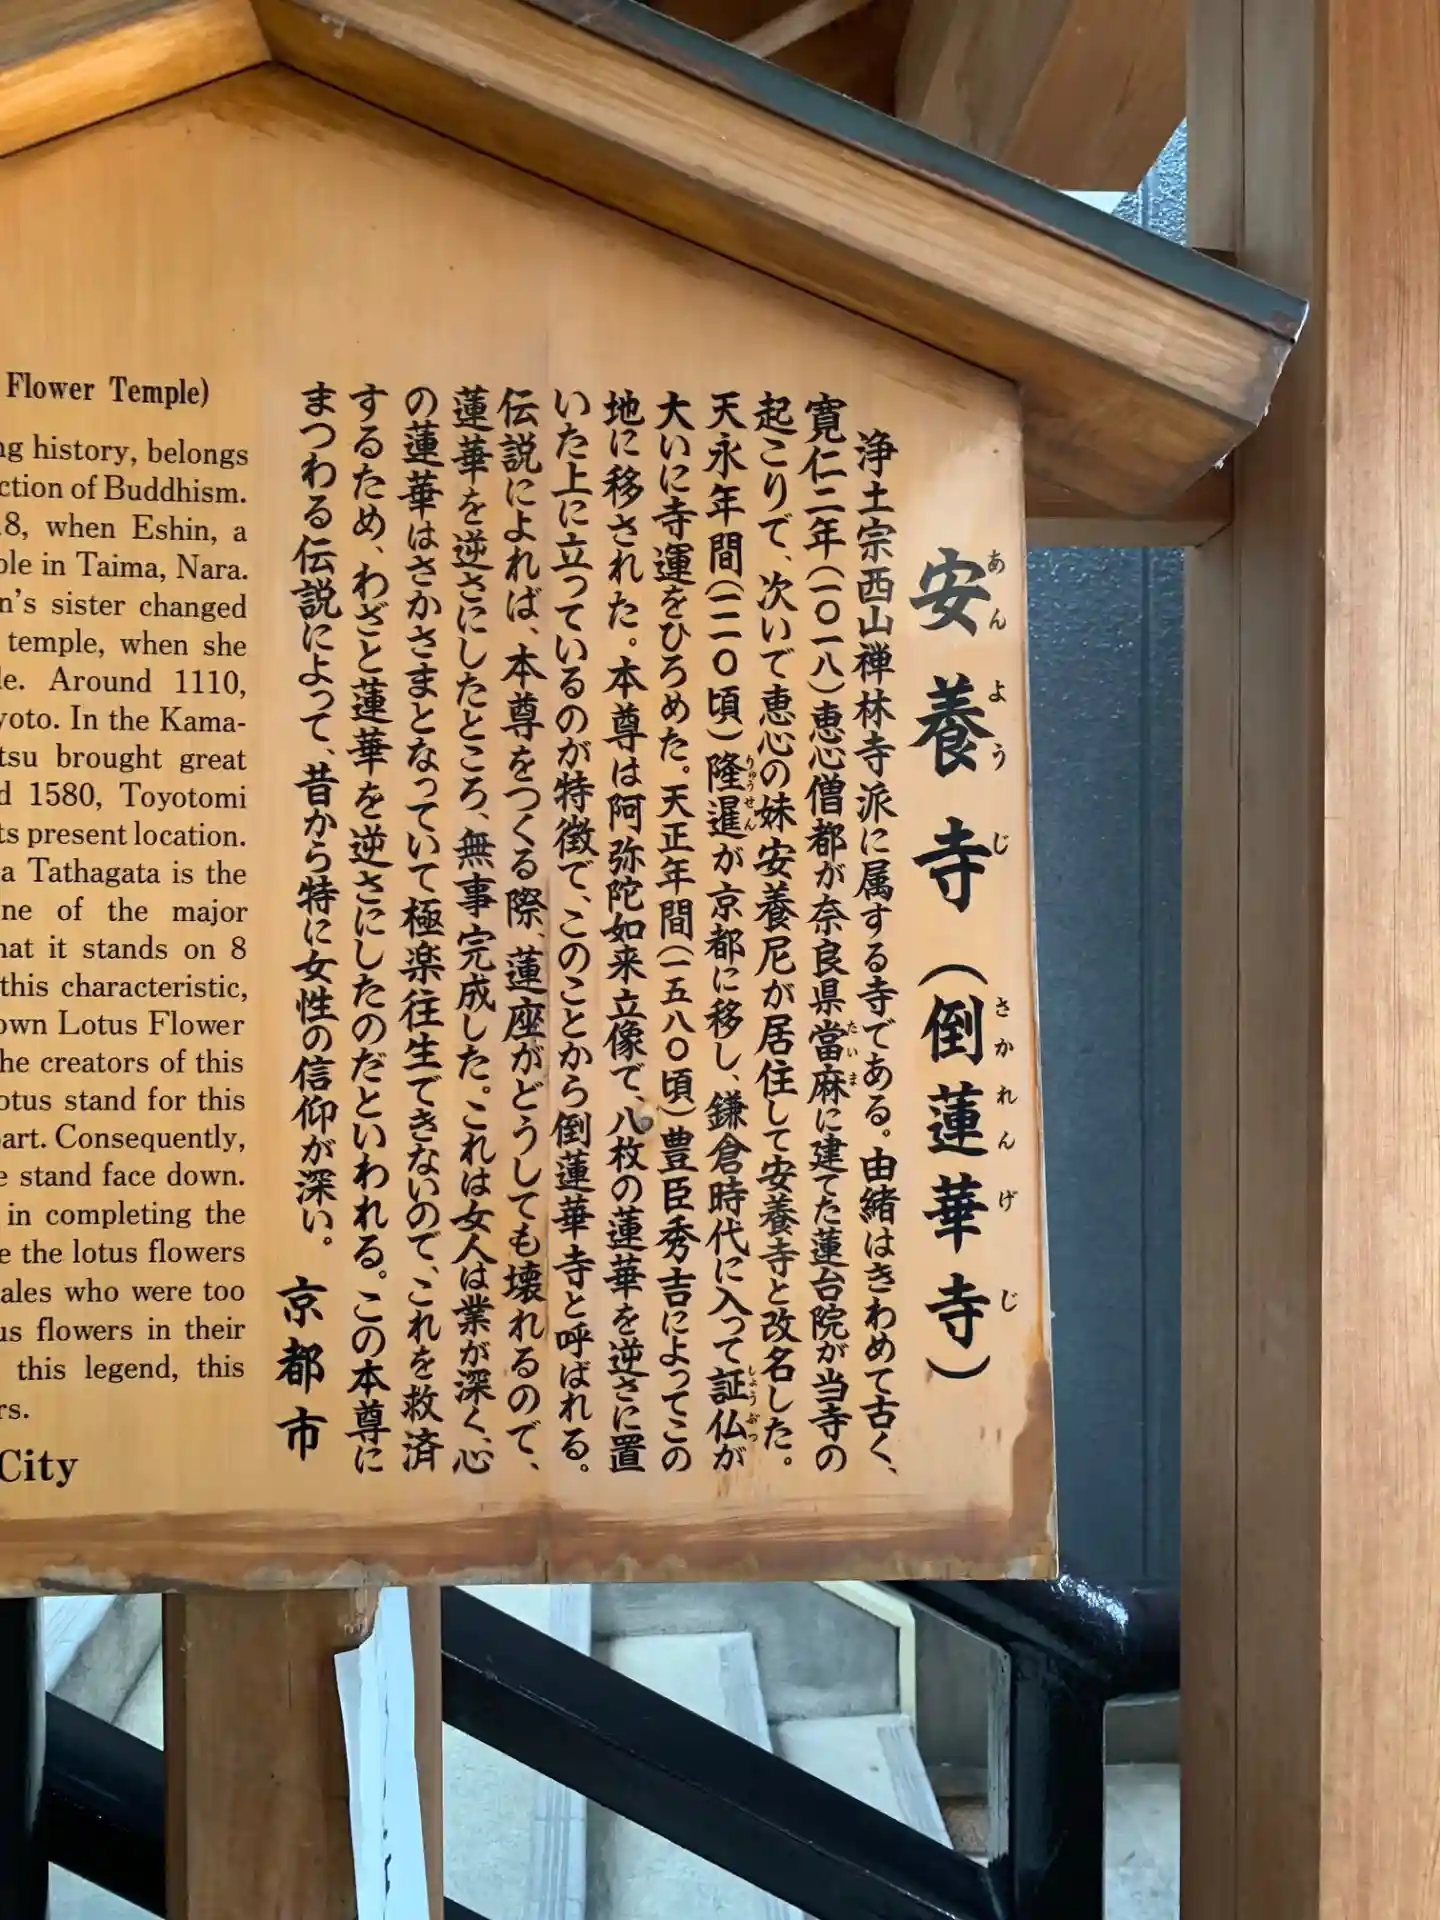 安養寺(倒蓮華寺)
あんようじ さかれんげじ
浄土宗西山禅林寺派に属する寺である。由緒はきわめて古く、
寛仁二年(一〇一八)恵心僧都が奈良県當麻に建てた蓮台院が当寺の
たいま
起こりで、次いで恵心の妹安養尼が居住して安養寺と改名した。
天永年間(一一一〇頃)隆暹が京都に移し、鎌倉時代に入って証仏が
りゅうせん しょうぶつ
大いに寺運をひろめた。天正年間(一五八〇頃)豊臣秀吉によってこの
地に移された。本尊は阿弥陀如来立像で、八枚の蓮華を逆さに置
いた上に立っているのが特徴で、このことから倒蓮華寺と呼ばれる。
伝説によれば、本尊をつくる際、蓮座がどうしても壊れるので、
蓮華を逆さにしたところ、無事完成した。これは女人は業が深く、心
の蓮華はさかさまとなっていて極楽往生できないので、これを救済
するため、わざと蓮華を逆さにしたのだといわれる。この本尊に
まつわる伝説によって、昔から特に女性の信仰が深い。
京都市
Flower Temple)
ng history, belongs
ction of Buddhism.
8, when Eshin, a
ple in Taima, Nara.
n's sister changed
temple, when she
le. Around 1110,
yoto. In the Kama-
tsu brought great
d 1580, Toyotomi
ts present location.
a Tathagata is the
ne of the major
hat it stands on 8
this characteristic,
own Lotus Flower
he creators of this
otus stand for this
part. Consequently,
e stand face down.
in completing the
e the lotus flowers
ales who were too
us flowers in their
this legend, this
rs.
City